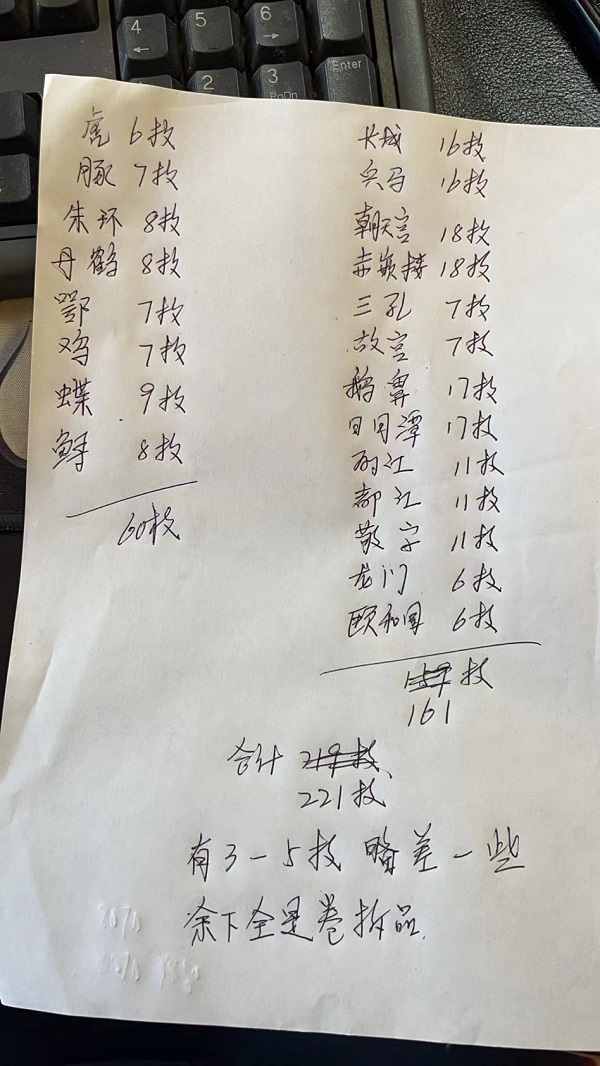 4
←
5
6
→
2
3
PgDn
Enter
虎 6枚
豚 7枚
朱环 8枚
丹鹤 8枚
鄂 7枚
鸡 7枚
蝶 9枚
鲟 8枚
60枚
长城 16枚
兵马 16枚
朝天宫 18枚
赤嵌楼 18枚
三孔 7枚
故宫 7枚
鹅鼻 17枚
日月潭 17枚
丽江 11枚
都江 11枚
敦字 11枚
龙门 6枚
颐和园 6枚
159枚
161
合计 219枚
221枚
有3-5枚 略差一些
余下全是卷拆品